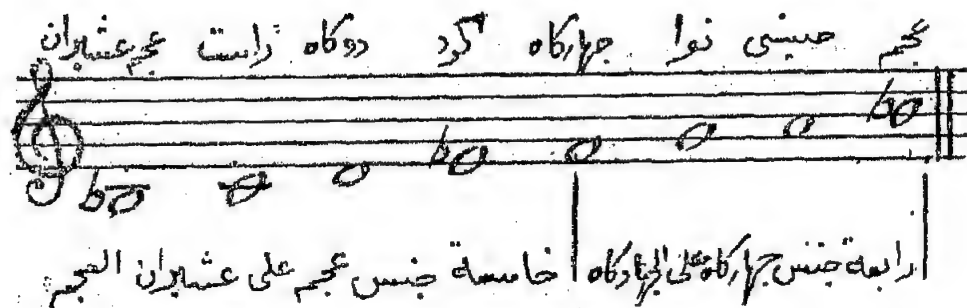 عجم حسيني نوا جهاركاه كرد دوكاه راست عجم عشيران
رابعة جنس جهاركاه على الجهاركاه خامسة جنس عجم على عشيران العجم